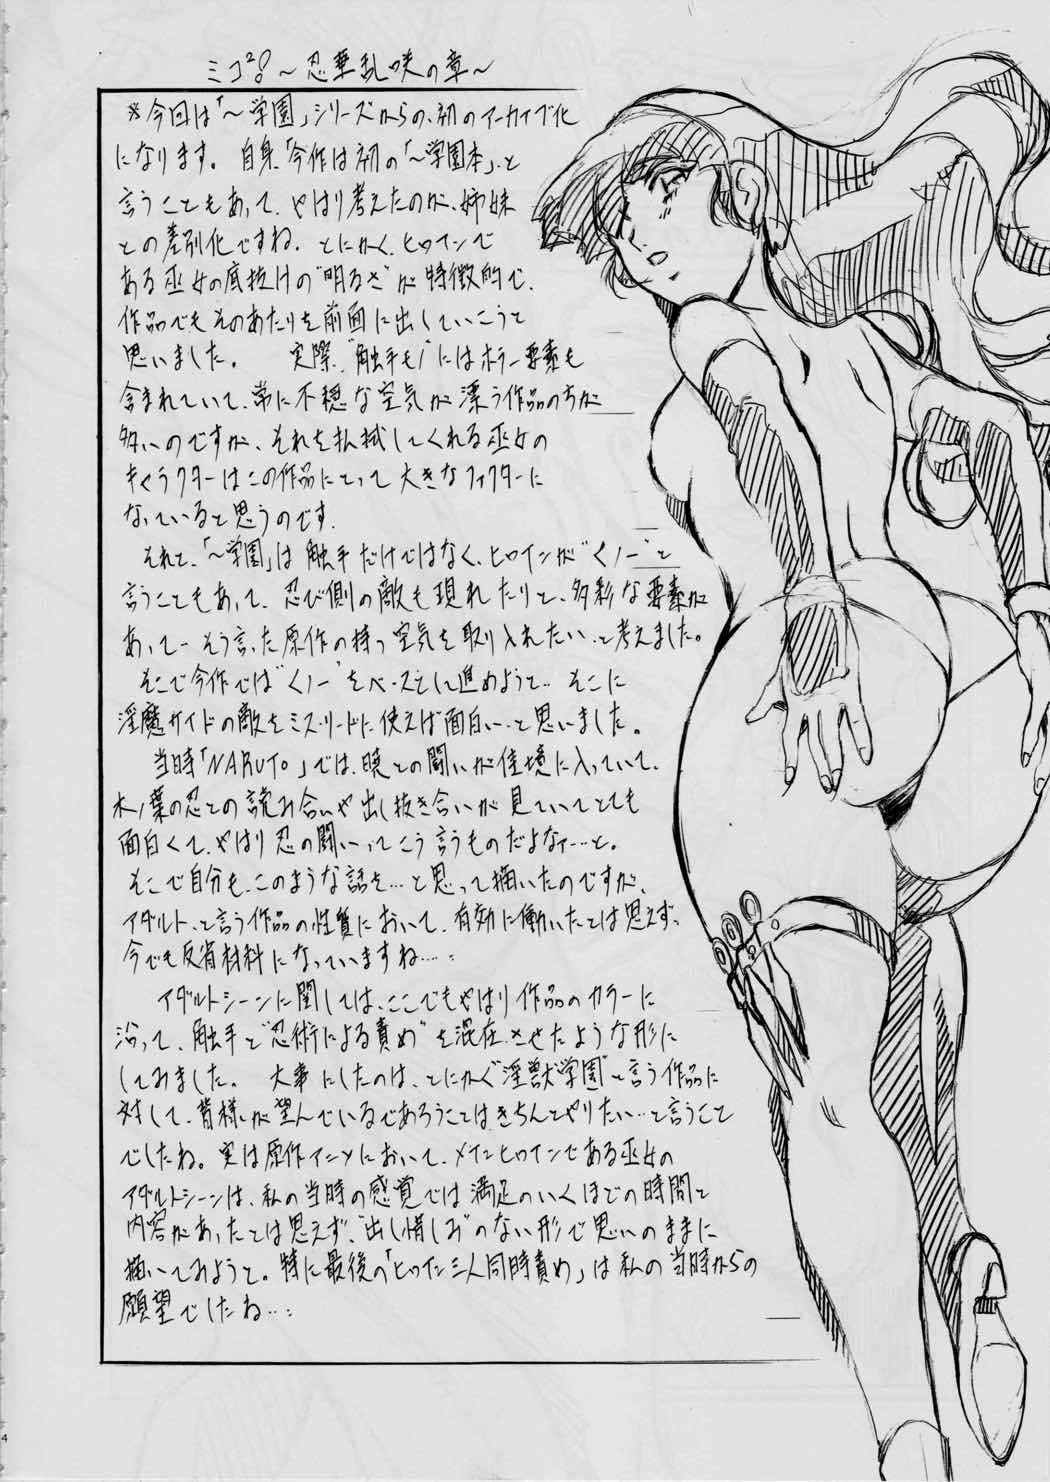 ミコ²8〜忍華乱咲の章〜
※今回は「〜学園」シリーズからの、初のアーカイブ化
になります。 自身「今作は初の「〜学園本」と
言うこともあって、やはり考えたのが、姉妹
との差別化ですね、とにかく、ヒロインで
ある巫女の底抜けの"明るさ"が特徴的で、
作品でもそのあたりを前面に出していこうと
思いました。 実際、"触手モノ"にはホラー要素も
含まれていて、常に不穏な空気が漂う作品の方が
多いのですが、それを払拭してくれる巫女の
キャラクターはこの作品にとって大きなファクターに
なっていると思うのです。
それと、「〜学園」は触手だけではなく、ヒロインが"くノ一"と
言うこともあって、忍び側の敵も現れたりと、多彩な要素が
あって…そう言った原作の持つ空気を取り入れたい…と考えました。
そこで今作では"くノ一"をベースとして進めようと… そこに
淫魔サイドの敵をミスリードに使えば面白い…と思いました。
当時「NARUTO」では、暁との闘いが佳境に入っていて、
木ノ葉の忍との読み合いや出し抜き合いが見ていてとても
面白くて、やはり忍の闘いってこう言うものだよなァ…と。
そこで自分も、このような話を…と思って描いたのですが、
アダルト、と言う作品の性質において、有効に働いたとは思えず、
今でも反省材料になっていますね…。
アダルトシーンに関しては、ここでもやはり作品のカラーに
沿って、触手と"忍術による責め"を混在させたような形に
してみました。 大事にしたのは、とにかく"淫獣学園"と言う作品に
対して、皆様が望んでいるであろうことはきちんとやりたい…と言うこと
でしたね。実は原作アニメにおいて、メインヒロインである巫女の
アダルトシーンは、私の当時の感覚では満足のいくほどの時間と
内容があったとは思えず、"出し惜しみ"のない形で思いのままに
描いてみようと。特に最後の「ヒロイン三人同時責め」は私の当時からの
願望でしたね…。
4